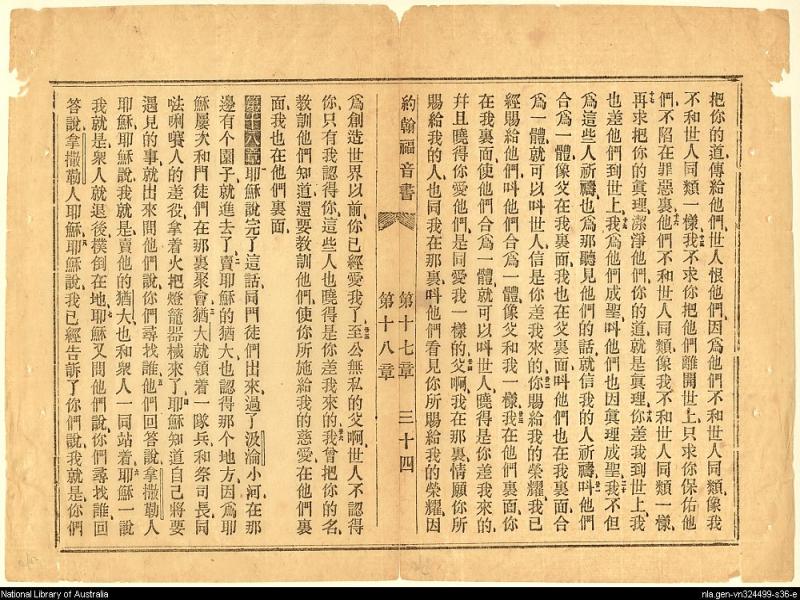 把你的道傳給他們世人恨他們因爲他們不和世人同類像我
不和世人同類一樣我不求你把他們離開世上只求你保佑他
們不陷在罪惡裏他們不和世人同類像我不和世人同類一樣
再求把你的眞理潔淨他們你的道就是眞理你差我到世上我
也差他們到世上我爲他們成聖呌他們也因眞理成聖我不但
爲這些人祈禱也爲那聽見他們的話就信我的人祈禱呌他們
合爲一體像父在我裏面我也在父裏面呌他們也在我裏面合
爲一體就可以呌世人信是你差我來的你賜給我的榮耀我已
經賜給他們呌他們合爲一體像父和我一樣我在他們裏面你
在我裏面使他們合爲一體就可以呌世人曉得是你差我來的
幷且曉得你愛他們是同愛我一樣的父啊我在那裏情願你所
賜給我的人也同我在那裏呌他們看見你所賜給我的榮耀因
約翰福音書 第十七章 三十四
第十八章
爲創造世界以前你已經愛我了至公無私的父啊世人不認得
你只有我認得你這些人也曉得是你差我來的我曾把你的名
教訓他們知道還要教訓他們使你所施給我的慈愛在他們裏
面我也在他們裏面
第十八章耶穌說完了這話同門徒們出來過了汲淪小河在那
邊有个園子就進去了賣耶穌的猶大也認得那个地方因爲耶
穌屢次和門徒們在那裏聚會猶大就領着一隊兵和祭司長同
𠵽唎賽人的差役拿着火把燈籠器械來了耶穌知道自己將要
遇見的事就出來問他們說你們尋找誰他們回答說拿撒勒人
耶穌耶穌說我就是賣他的猶大也和衆人一同站着耶穌一說
我就是衆人就退後撲倒在地耶穌又問他們說你們尋找誰回
答說拿撒勒人耶穌耶穌說我已經告訴了你們說我就是你們
National Library of Australia
nla.gen-vn324499-s36-e